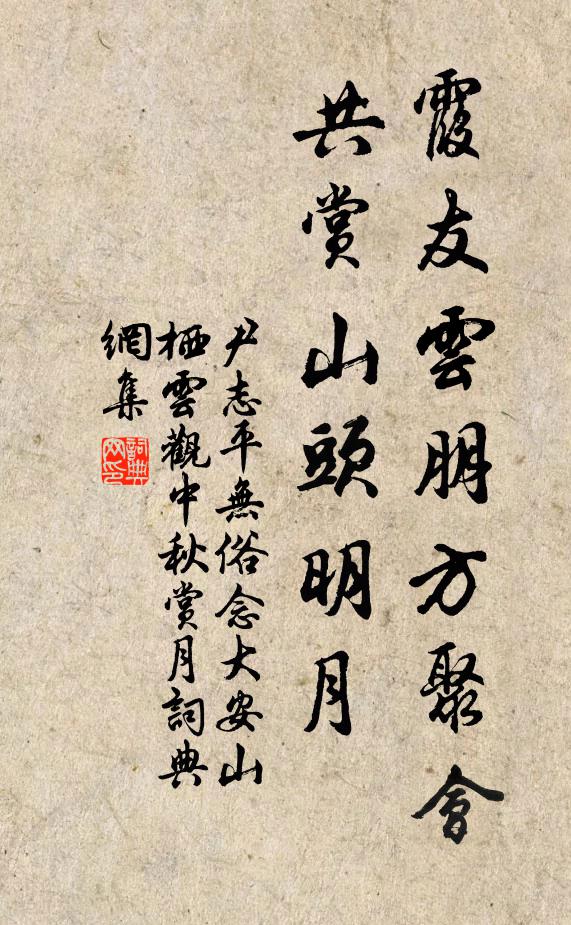 霞友雲朋方聚會
共賞山頭明月
尹志平無俗念大安山
栖雲觀中秋賞月詞典
網集
詞典
网印